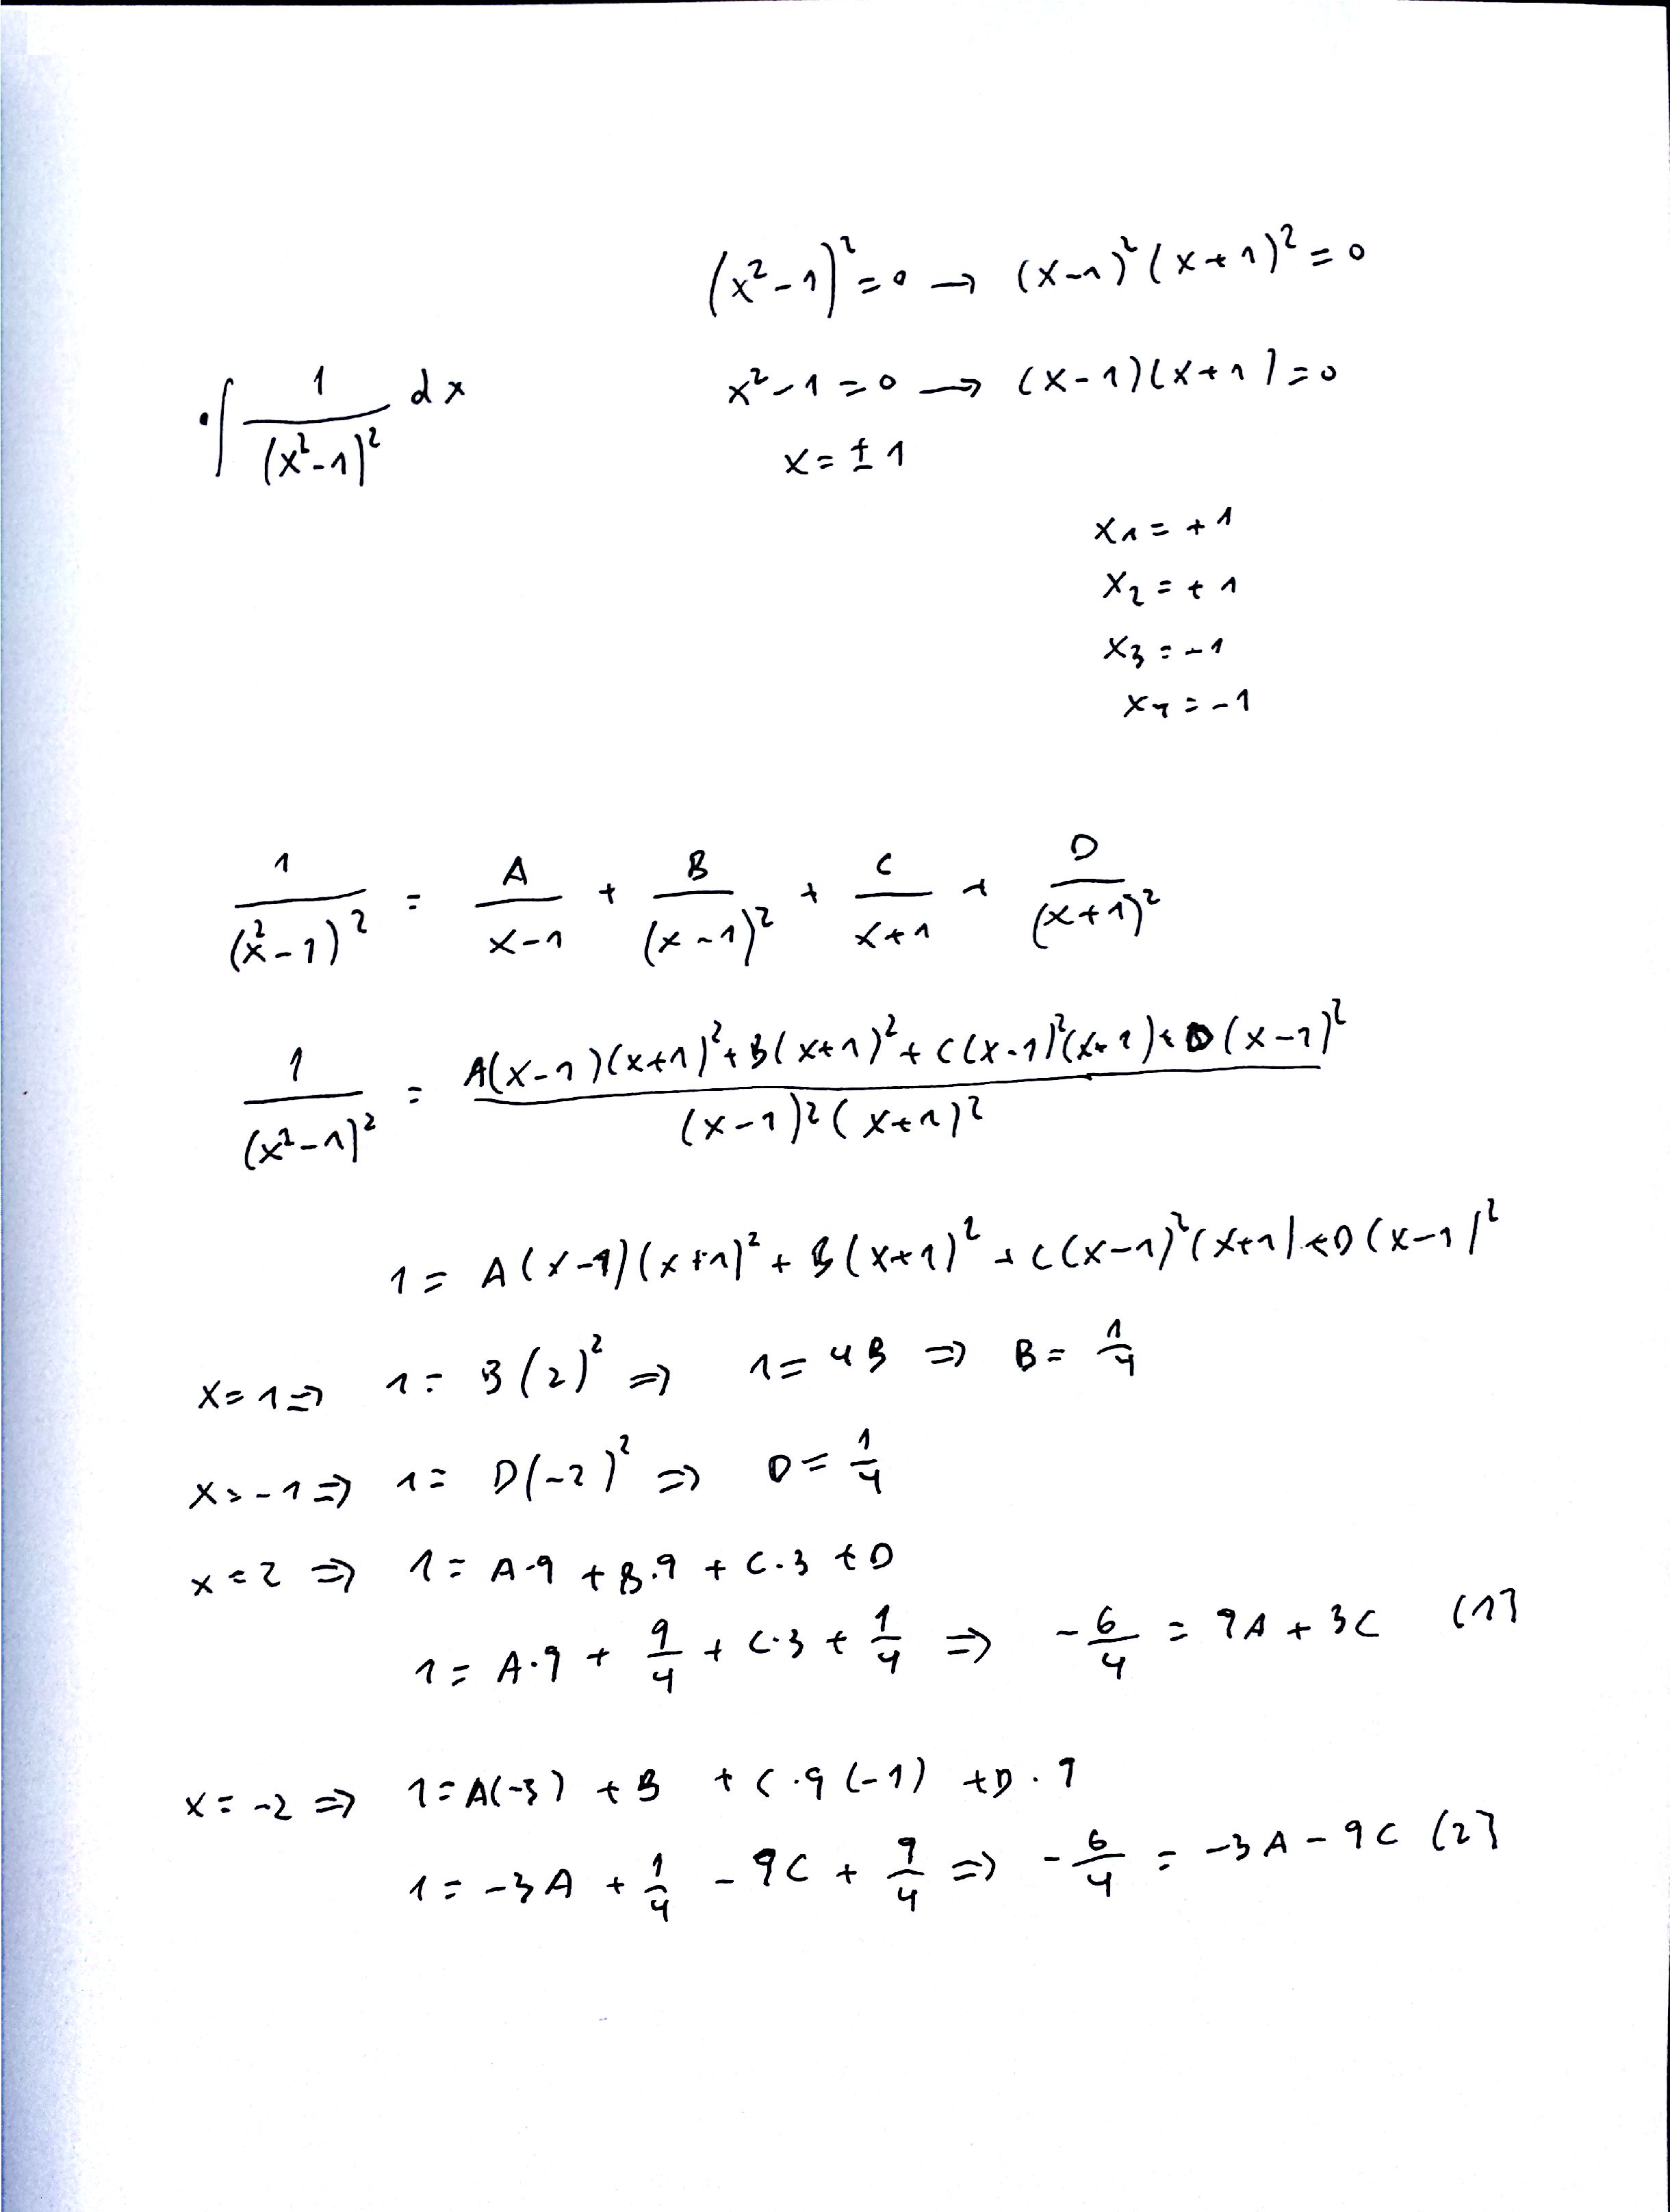 (x²-1)²=0 → (x-1)²(x+1)²=0
• ∫ 1/(x²-1)² dx
x²-1=0 → (x-1)(x+1)=0
x=±1
x₁=+1
x₂=+1
x₃=-1
x₄=-1
1/(x²-1)² = A/(x-1) + B/(x-1)² + C/(x+1) + D/(x+1)²
1/(x²-1)² = (A(x-1)(x+1)²+B(x+1)²+C(x-1)²(x+1)+D(x-1)²)/((x-1)²(x+1)²)
1= A(x-1)(x+1)²+B(x+1)²+C(x-1)²(x+1)+D(x-1)²
x=1⇒ 1=B(2)² ⇒ 1=4B ⇒ B=1/4
x=-1⇒ 1=D(-2)² ⇒ D=1/4
x=2 ⇒ 1=A·9+B·9+C·3+D
1=A·9+9/4+C·3+1/4 ⇒ -6/4=9A+3C (1)
x=-2 ⇒ 1=A(-3)+B+C·9(-1)+D·9
1=-3A+1/4-9C+9/4 ⇒ -6/4=-3A-9C (2)